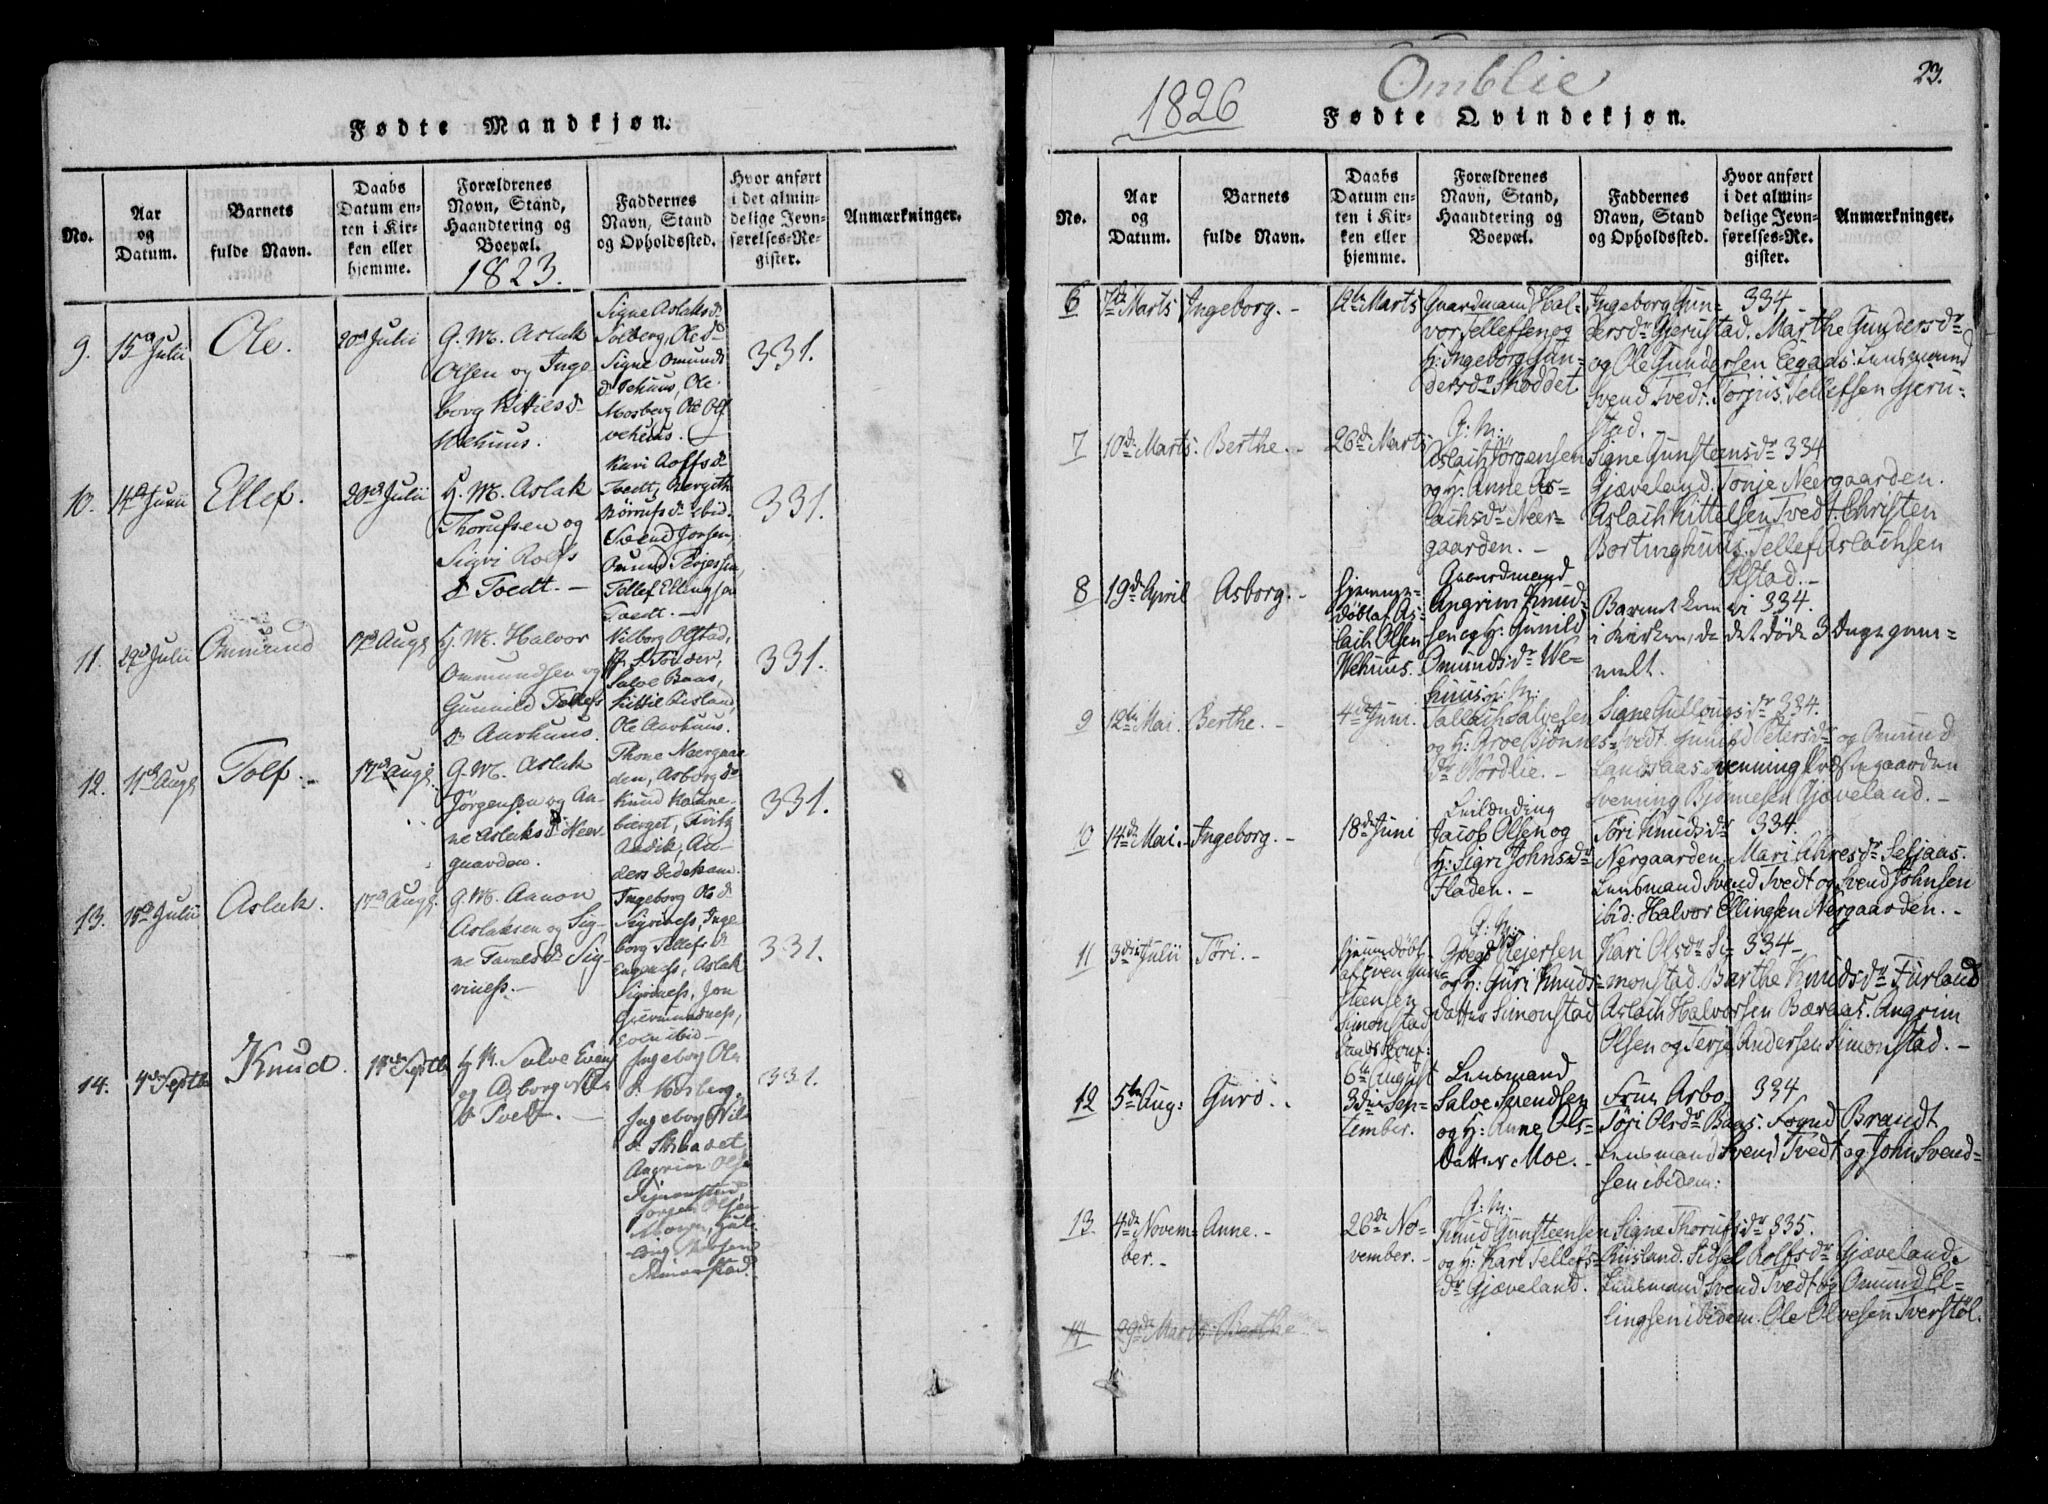 Fødte Mandkjøn.
No.
Aar og Datum.
Barnets fulde Navn.
Daabs Datum enten i Kirken eller hjemme.
Forældrenes Navn, Stand, Haandtering og Boepæl.
Faddernes Navn, Stand og Opholdssted.
Hvor anført i det almindelige Jevnførelses-Register.
Anmærkninger.
1823.
9. 15d Julii
Ole.
20d Julii
G. M. Aslak
Olsen og Inge
borg Kittelsd
Wehuus.
Signe Aslaksd
Solberg, Ole
Signe Omunds
d Vehuus, Ole
Mosberg Ole Olss
vehuus.
331.
10. 14d Junii
Ellef.
20d Julii
G. M. Aslak
Thorufsen og
Sigri Rolfs
d Tvedt. -
Kari Rolfsd
Tvedt,
ibid.
Svend Jonsen,
Omund Terjessen,
Tellef Ellingsen
Tvedt. -
331.
11. 27d Julii
Ommund
17d Augs
G. M. Halvor
Ommundsen og
Gunild Tellefs
d Aarhuus.
Vilborg Olstad,
Salve Baas,
Kittil Risland,
Ole Aarhuus.
331.
12. 11d Augs
Tolf. -
17d Augs
G. M. Aslak
Jörgensen og An-
ne Aslaksd Neer-
guarden.
Thone Neergaar
den, Asborg
Knud
bierget,
ders
331.
13. 15d Julii
Aslak.
17d Augs
G. M. Aanon
Aslaksen og Sig-
ne Tarald d Sig-
viness. -
Ingeborg Olsd
Signess, Inge
borg Tellefsd
Aslak
Jon
Even ibid -
331.
14. 4d Septbr
Knud.
14d Septbr
Salve Evens
og Asborg Nils
d Tvedt. -
Ingeborg Ols
d. Mosberg,
Ingeborg Nils
d.
Angrim Olsen
Simonstad
Jörgen Olsen
Simonstad.
331.
1826
Omblie
23.
Fødte Qvindekjøn.
No.
Aar og Datum.
Barnets fulde Navn.
Daabs Datum enten i Kirken eller hjemme.
Forældrenes Navn, Stand, Haandtering og Boepæl.
Faddernes Navn, Stand og Opholdssted.
Hvor anført i det almindelige Jevnførelses-Register.
Anmærkninger.
6 7de Marts Ingeborg. -
Marts
Gaardmand Hal-
vor Tellefsen og
H: Ingeborg Gun-
dersdr Skoddet
Ingeborg Gun- 334
dersdr Gjerustad. Marthe Gundersdr
og Ole Gundersen Eegaas. Lensmand
Svend Tvedt. Torjus Tellefsen Gjeru-
stad. -
7 10de Marts. Berthe. -
26de Marts
G: M:
Aslach Jörgensen
og H: Anne As-
lachsdr Neer-
gaarden. -
Signe Gunsteensdr 334
Gjæveland. Tonje Neergaarden.
Aslach Kittelsen Tvedt. Christen
Bortinghuus. Tellef Aslachsen
Olstad. -
8 19de April Asborg. -
hjemme-
døbt af As-
lach Olsen
Wehuus.
Gaardmand
Angrim Knud-
sen og H: Gunild
Omundsdr We-
huus.
Barnet kom ei 334.
i Kirken, da det døde 3 Dage gam-
melt.
9 12te Mai. Berthe. -
4de Juni.
G: M:
Tallach Salvesen
og H: Groe Bjønnes-
dr Nordlie. -
Signe Gullougsdr 334.
Tvedt. Gunild Petersdr og Omund
Landsaas Svenning Præstegaarden
Svenning Bjønnesen Gjæveland. -
10 14de Mai. - Ingeborg. -
18de Juni
Jacob Olsen og
H: Sigri Johnsdr
Fladen. -
Töri Knudsdr 334.
Nergaarden, Mari Ahresdr Seljaas.
Lensmand Svend Tvedt og Svend Johnsen
ibid: Halvor Ellingsen Nergaarden. -
11 3die Julii Töri. -
hjemmedöbt
af Even Gun-
steensen
Simonstad
6te August
G: M:
Greg Reiersen
og H: Guri Knuds-
datter Simonstad
Kari Olsdr Si- 334-
monstad. Barthe Knudsdr Furland
Aslach Halvorsen Bæraas. Angrim
Olsen og Terje Andersen Simonstad. -
12 5te Aug: Guro. -
3die Sep-
tember.
Lensmand
Salve Svendsen
og H: Anne Ols-
datter Moe. -
Frue Arbo 334
Töri Olsdr Baas. Fogud Brandt
Lensmand Svend Tvedt og John Svend-
sen ibidem:
13. 4de Novem- Anne. -
ber. -
26de No-
vember. -
G: M:
Knud Gunsteensen
og H: Kari Tellefs-
dr Gjæveland.
Signe Thorufsdr 335.
Riisland. Sidsel Rolfsdr Gjæveland.
Lensmand Svend Tvedt og Omund El-
lingsen ibidem. Ole Olvesen Tverstöl.
14 29de Marts Berthe